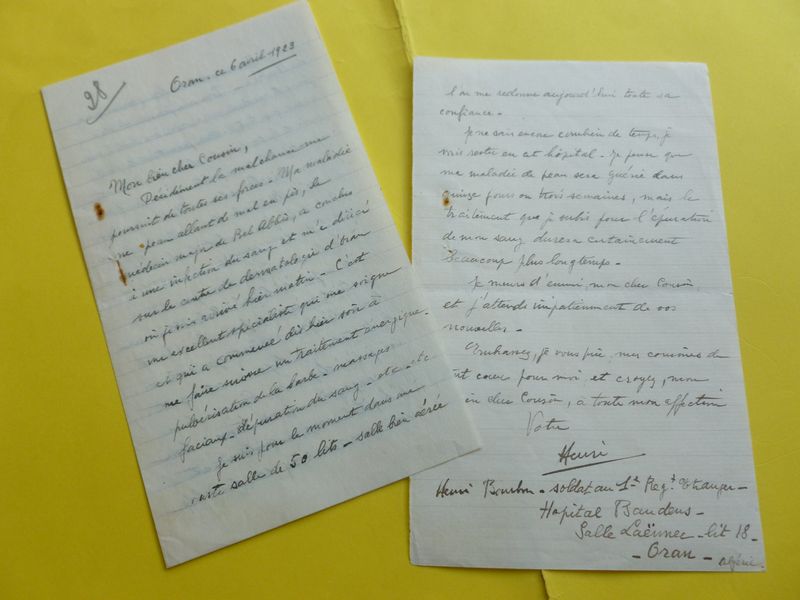 98
Oran, ce 6 avril 1923
Mon bien cher Cousin,
Décidément la malchance me
poursuit de toutes ses forces. Ma maladie
de peau allant de mal en pis, le
médecin major de Bel Abbès, a conclu
à une infection du sang et m'a dirigé
sur le centre de dermatologie d'Oran
où je suis arrivé hier matin. C'est
un excellent spécialiste qui me soigne
et qui a commencé dès hier soir à
me faire suivre un traitement énergique.
pulvérisation de la barbe - massages
faciaux - dépuration du sang - etc - etc
Je suis pour le moment dans une
vaste salle de 50 lits - salle bien aérée
l'on me redonne aujourd'hui toute sa
confiance -
Je ne sais encore combien de temps, je
vais rester en cet hôpital. Je pense que
ma maladie de peau sera guérie dans
quinze jours ou trois semaines, mais le
traitement que je subis pour l'épuration
de mon sang durera certainement
beaucoup plus longtemps -
Je meurs d'ennui, mon cher Cousin
et j'attends impatiemment de vos
nouvelles -
Embrassez, je vous prie, mes cousines de
tout coeur pour moi et croyez, mon
bien cher Cousin, à toute mon affection
Votre
Henri
Henri Bourbon - soldat au 1er Regt Etranger -
Hopital Baudens -
Salle Laënnec - lit 18 -
- Oran - algérie.